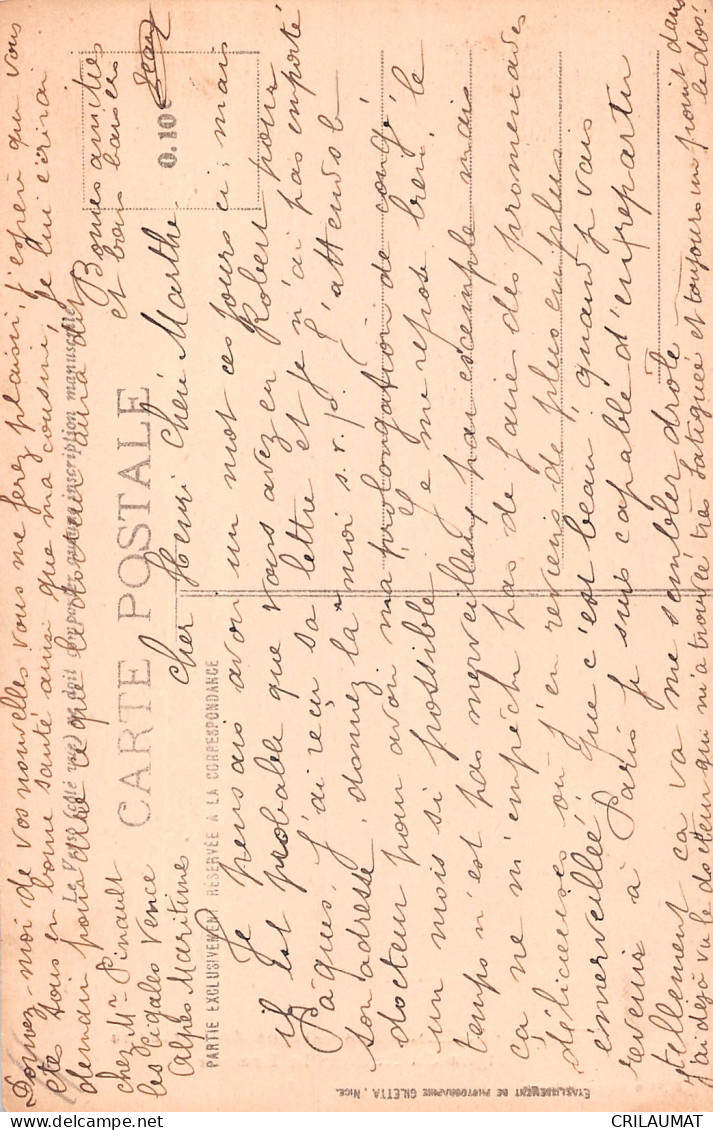 CARTE POSTALE
Le Verso (côté vue) ne doit supporter aucune inscription manuscrite
PARTIE EXCLUSIVEMENT RÉSERVÉE A LA CORRESPONDANCE
0.10
chez Mr Pinault
les Cigales Vence
Alpes Maritime.
Cher Henri Chéri Marthe.
Je pensais avoir un mot ces jours ci, mais
il est probable que vous avez eu Robert pour
Pâques, j'ai reçu sa lettre et je n'ai pas emporté
son adresse, donnez la moi s.v.p. J'attends le
docteur pour avoir ma prolongation de congé
un mois si possible. Je me repose bien, le
temps n'est pas merveilleux par exemple mais
ça ne m'empêche pas de faire des promenades
délicieuses où j'en reviens de plus en plus
émerveillée. Que c'est beau, quand je vais
revenir à Paris je suis capable d'en repartir
tellement ça va me sembler drôle.
J'ai déjà vu le docteur qui m'a trouvée très fatiguée et toujours un point dans le dos.
Donnez-moi de vos nouvelles vous me ferez plaisir, j'espère que vous
êtes tous en bonne santé ainsi que ma cousine, je lui écrirai
demain pour dire ce que le docteur aura dit
Bonnes amitiés
et bons baisers
ÉTABLISSEMENT DE PHOTOGRAPHIE GILETTA, NICE.
CRILAUMAT